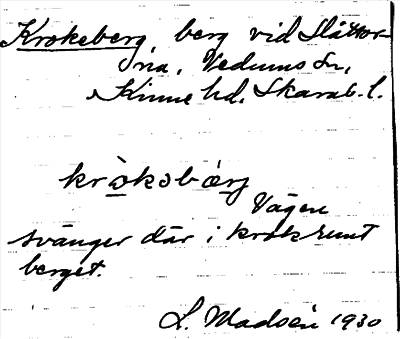 Krokeberg, berg vid Slättor-
na, Vedums sn,
Kinne hd. Skarab. l.
krò̱ksbærj
Vägen
svänger där i krok runt
berget.
L. Madsén 1930